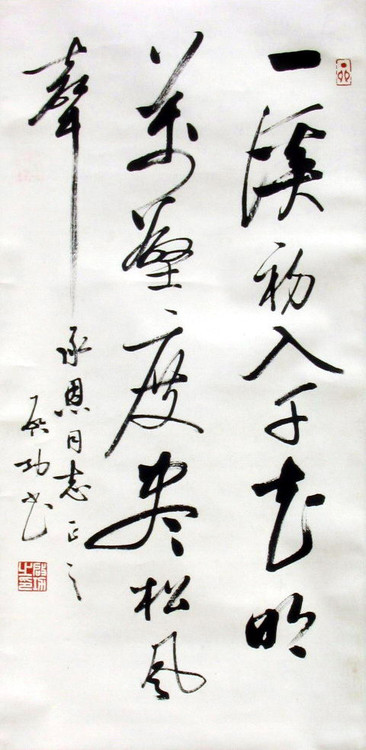 一溪初入千花明
萬壑度盡松風
聲
承恩同志正之
啟功書
啟功之印